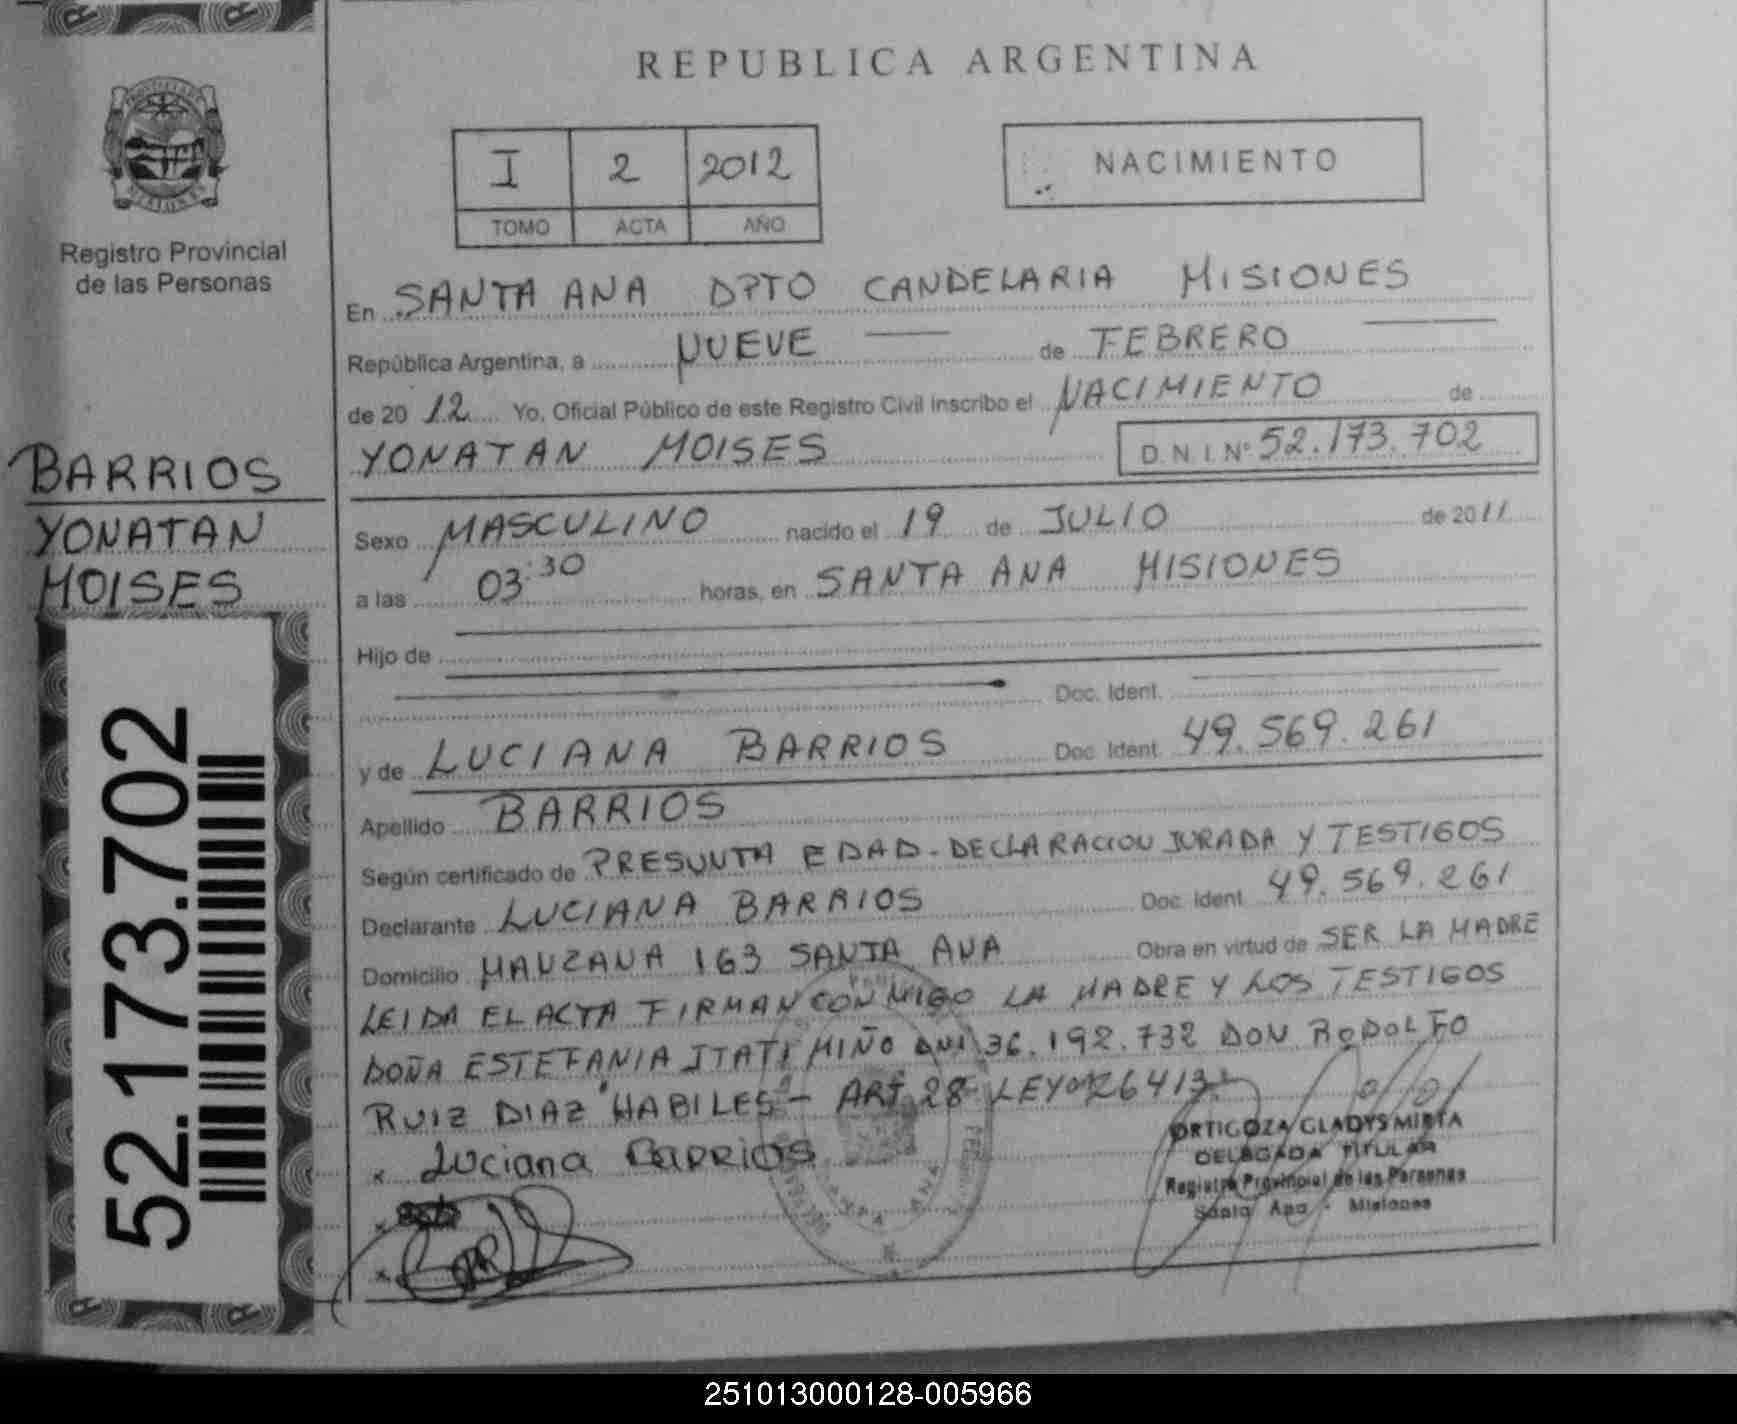 REPUBLICA ARGENTINA
I 2 2012
TOMO ACTA AÑO
NACIMIENTO
Registro Provincial
de las Personas
En SANTA ANA DPTO CANDELARIA MISIONES
República Argentina, a NUEVE de FEBRERO
de 20 12 Yo, Oficial Público de este Registro Civil inscribo el NACIMIENTO de
YONATAN MOISES D.N.I. Nº 52.173.702
BARRIOS
YONATAN
MOISES
52.173.702
Sexo MASCULINO nacido el 19 de JULIO de 2011
a las 03:30 horas, en SANTA ANA MISIONES
Hijo de
Doc. Ident.
y de LUCIANA BARRIOS Doc. Ident. 49.569.261
Apellido BARRIOS
Según certificado de PRESUNTA EDAD - DECLARACION JURADA Y TESTIGOS
Declarante LUCIANA BARRIOS Doc. Ident. 49.569.261
Domicilio MANZANA 163 SANTA ANA Obra en virtud de SER LA MADRE
LEIDA EL ACTA FIRMAN CONMIGO LA MADRE Y LOS TESTIGOS
DOÑA ESTEFANIA ITATI MIÑO DNI 36.192.732 DON RODOLFO
RUIZ DIAZ "HABILES - ART 28 LEY Nº 26413"
x Luciana Barrios
x
x
ORTIGOZA GLADYS MIRTA
DELEGADA TITULAR
Registro Provincial de las Personas
Santa Ana - Misiones
251013000128-005966